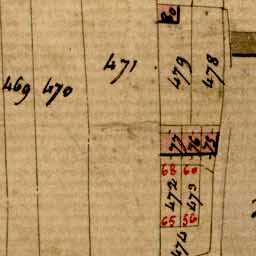 80
471
479
478
469
470
77
76
75
68
60
472
473
65
56
474